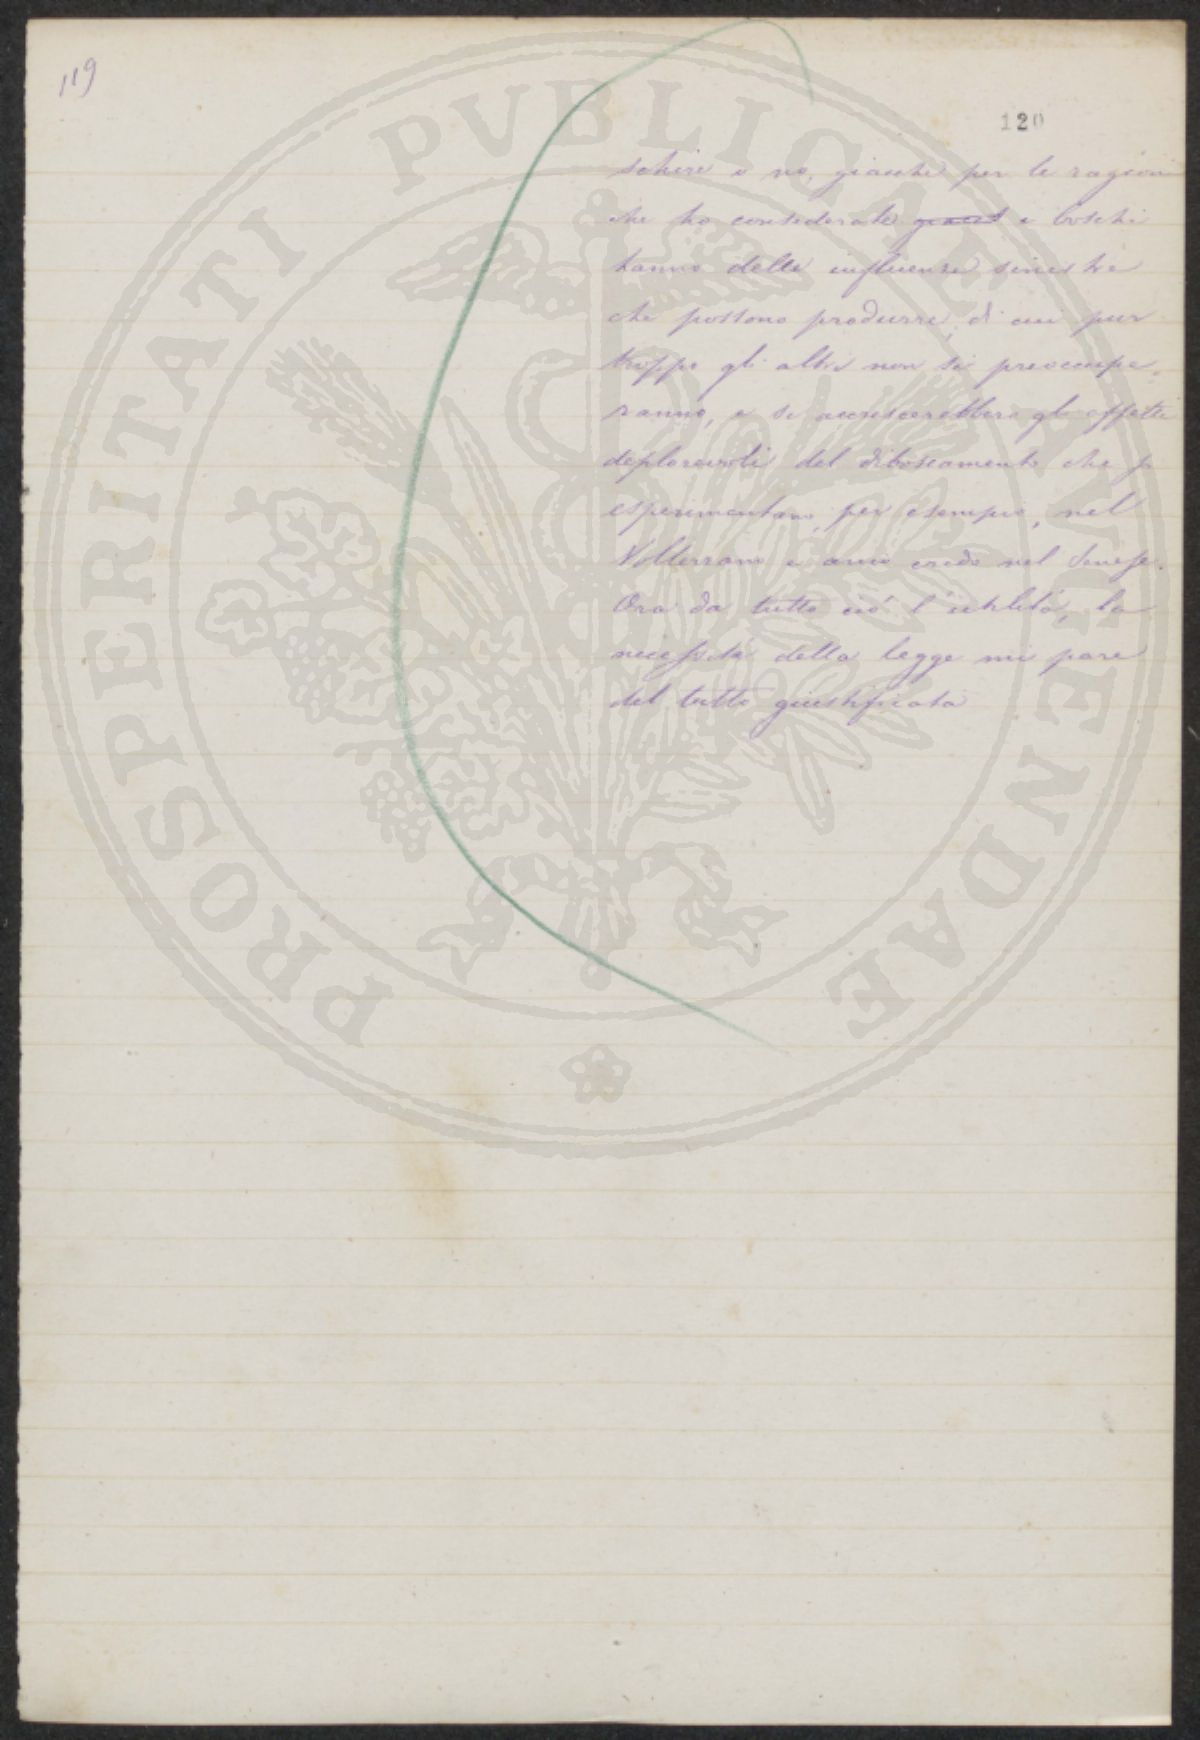 119
120
schire o no, giacché per le ragioni
che ho considerate i boschi
hanno delle influenze sinistre
che possono produrre, di cui pur
troppo gli altri non si preoccupe
ranno, e si accrescerebbero gli effetti
deplorevoli del diboscamento che si
esperimentano, per esempio, nel
Volterrano e anco credo nel Senese.
Ora da tutto ciò l'utilità, la
necessità della legge mi pare
del tutto giustificata
PROSPERITATI PVBLICAE AVGENDAE